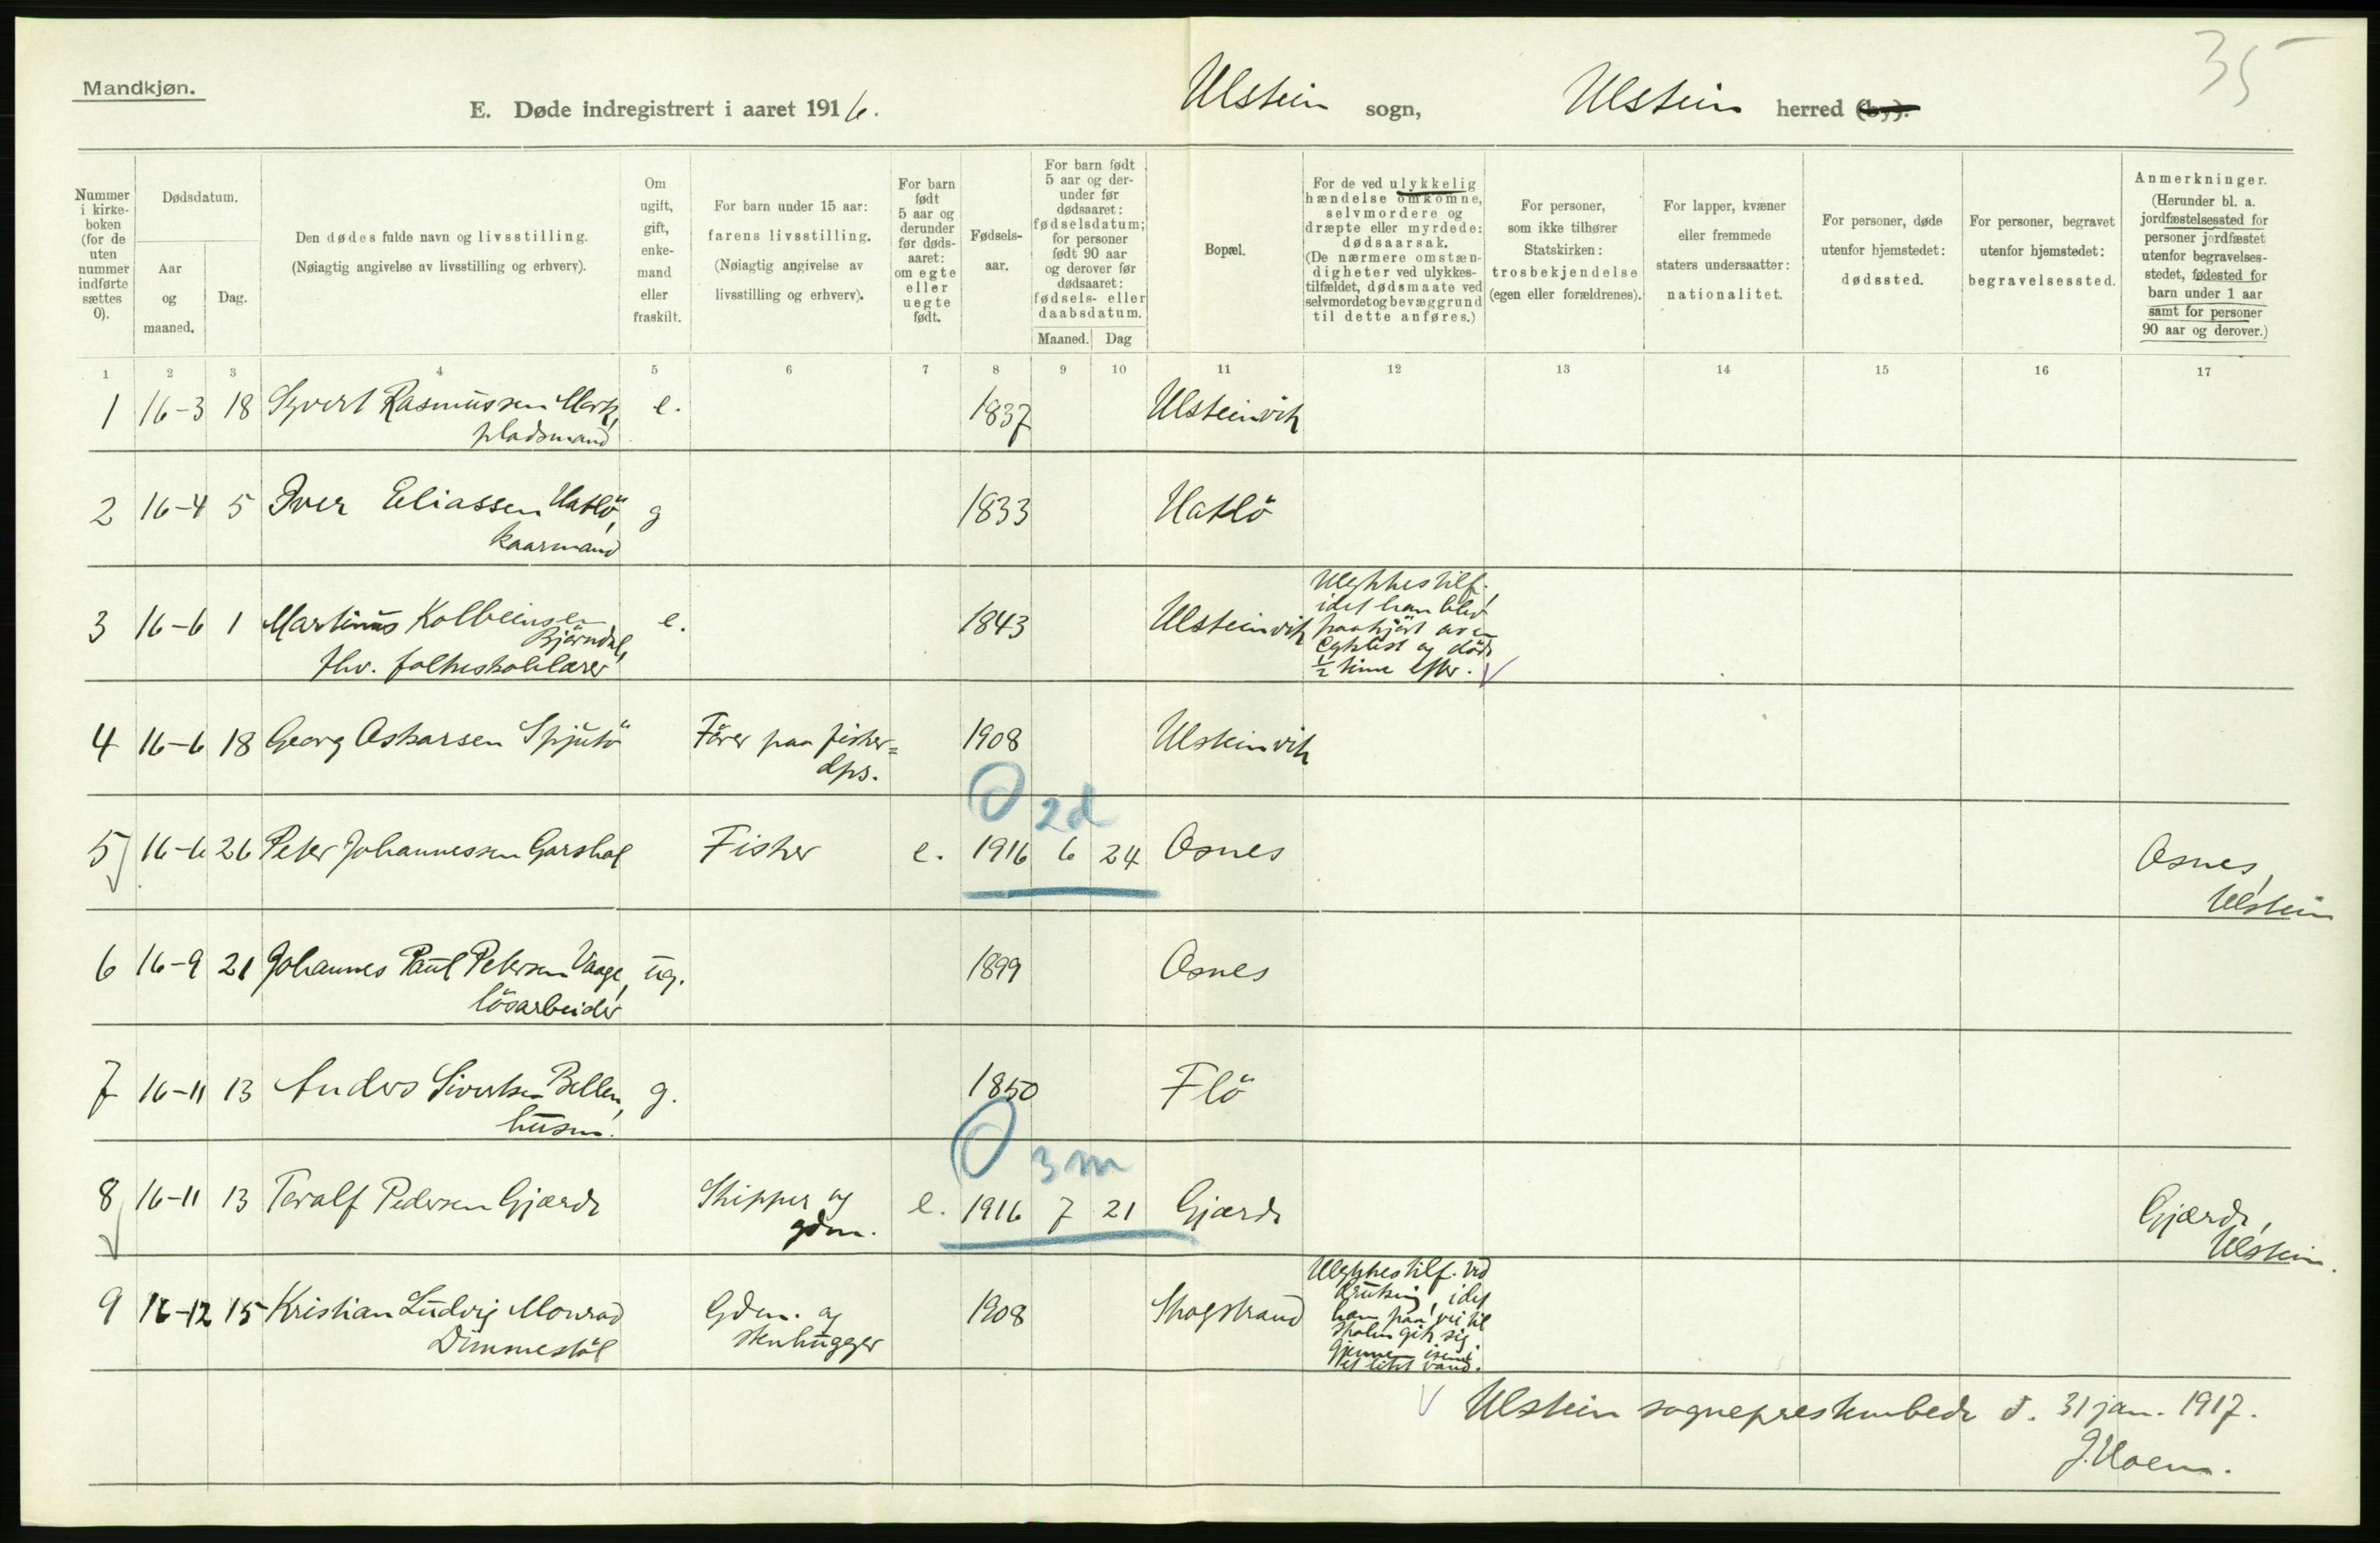 35
Mandkjøn.
E. Døde indregistrert i aaret 1916.
Ulstein sogn, Ulstein herred (by).
Nummer i kirkeboken (for de uten nummer indførte sættes 0).
Dødsdatum.
Aar og maaned.
Dag.
Den dødes fulde navn og livsstilling.
(Nøiagtig angivelse av livsstilling og erhverv).
Om ugift, gift, enkemand eller fraskilt.
For barn under 15 aar: farens livsstilling.
(Nøiagtig angivelse av livsstilling og erhverv).
For barn født 5 aar og derunder før dødsaaret: om egte eller uegte født.
Fødselsaar.
For barn født 5 aar og derunder før dødsaaret: fødselsdatum; for personer født 90 aar og derover før dødsaaret: fødsels- eller daabsdatum.
Maaned. Dag
Bopæl.
For de ved ulykkelig hændelse omkomne, selvmordere og dræpte eller myrdede: dødsaarsak.
(De nærmere omstændigheter ved ulykkestilfældet, dødsmaate ved selvmordet og bevæggrund til dette anføres.)
For personer, som ikke tilhører Statskirken: trosbekjendelse (egen eller forældrenes).
For lapper, kvæner eller fremmede staters undersaatter: nationalitet.
For personer, døde utenfor hjemstedet: dødssted.
For personer, begravet utenfor hjemstedet: begravelsessted.
Anmerkninger.
(Herunder bl. a. jordfæstelsessted for personer jordfæstet utenfor begravelsesstedet, fødested for barn under 1 aar samt for personer 90 aar og derover.)
1 2 3 4 5 6 7 8 9 10 11 12 13 14 15 16 17
1 16-3 18 Syvert Rasmussen Mork, e. 1837 Ulsteinvik
pladsmand
2 16-4 5 Iver Eliassen Hatlö, g 1833 Hatlö
kaarmand
3 16-6 1 Martinus Kolbeinsen e. 1843 Ulsteinvik
Björndal,
fhv. folkeskolelærer
Ulykkestilf.,
idet han blev
paakjört av en
cyklist og döde
½ time efter.
4 16-6 18 Georg Oskarsen Spjutö Förer paa fisker= 1908 Ulsteinvik
dps.
2d
5 16-6 26 Peter Johannessen Garshol Fisker e. 1916 6 24 Osnes Osnes,
Ulstein
6 16-9 21 Johannes Paul Petersen Vaage, ug. 1899 Osnes
lösarbeider
7 16-11 13 Anders Sivertsen Bellen, g. 1850 Flö
husm.
3m
8 16-11 13 Toralf Pedersen Gjærde Skipper og e. 1916 7 21 Gjærde Gjærde,
gdm. Ulstein.
9 16-12 15 Kristian Ludvig Monrad Gdm. og 1908 Skogstrand
Dimmestöl stenhugger
Ulykkestilf. ved
drukning, idet
han paa vei til
skolen gik sig
gjennem isen i
et litet vand.
Ulstein sogneprestembede d. 31 jan. 1917.
J. Hoem.